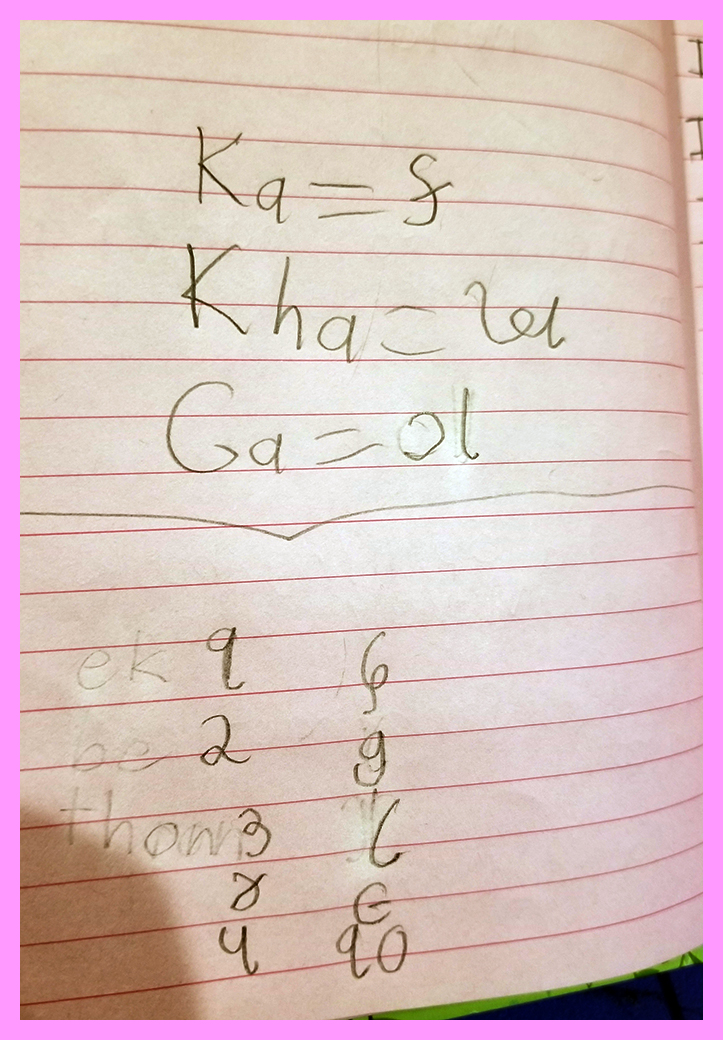 Ka = ક
Kha = ખ
Ga = ગ
ek ૧ ૬
be ૨ ૭
૩ ૮
૪ ૯
૫ ૧૦